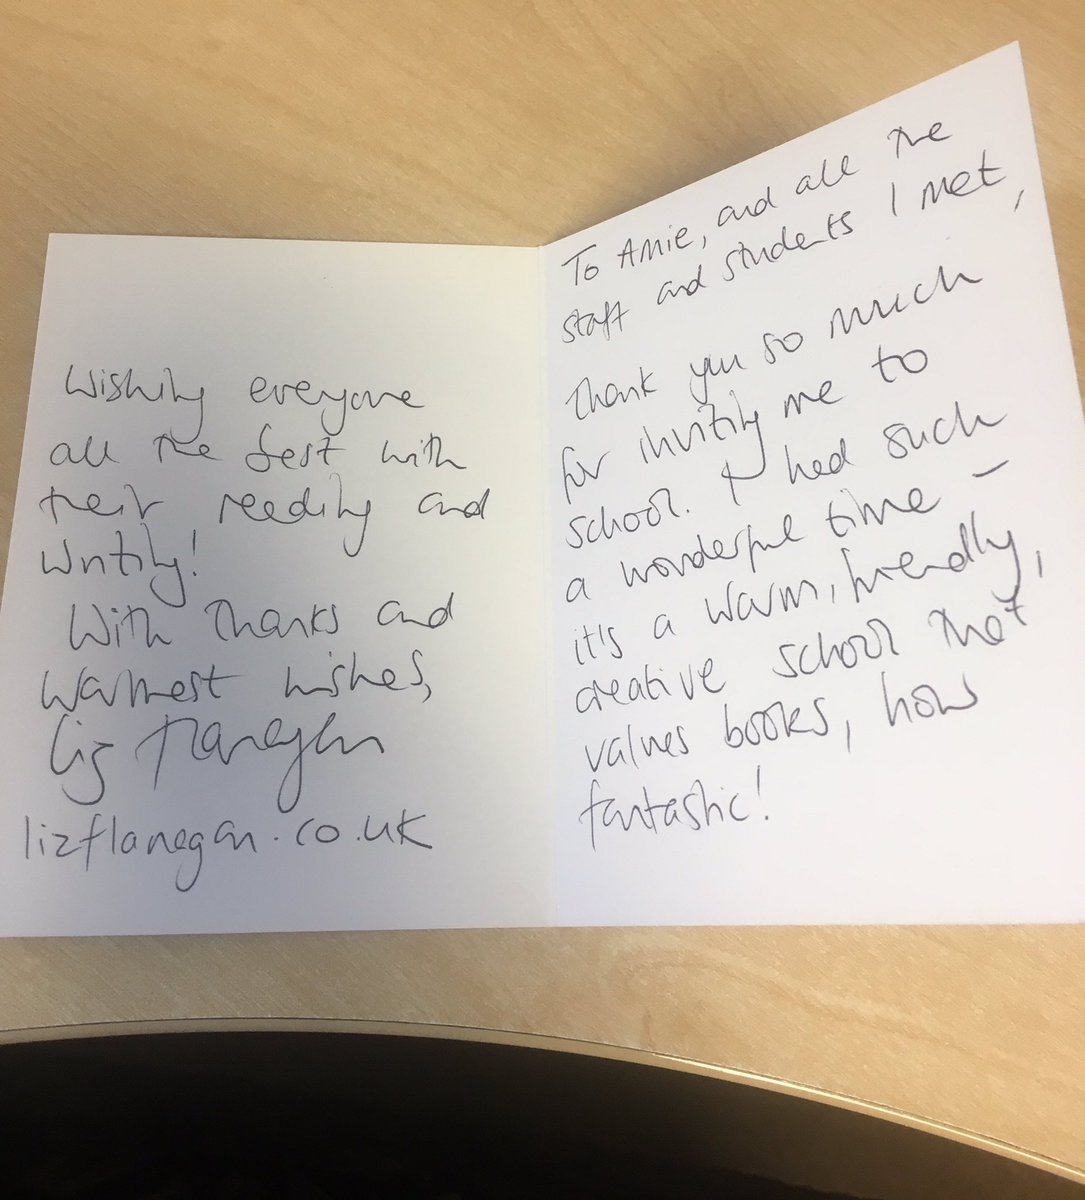 To Amie, and all the
staff and students I met,
Thank you so much
for inviting me to
school. I had such
a wonderful time –
it's a warm, friendly,
creative school that
values books, how
fantastic!
Wishing everyone
all the best with
their reading and
writing!
With thanks and
warmest wishes,
Liz Flanagan
lizflanagan.co.uk